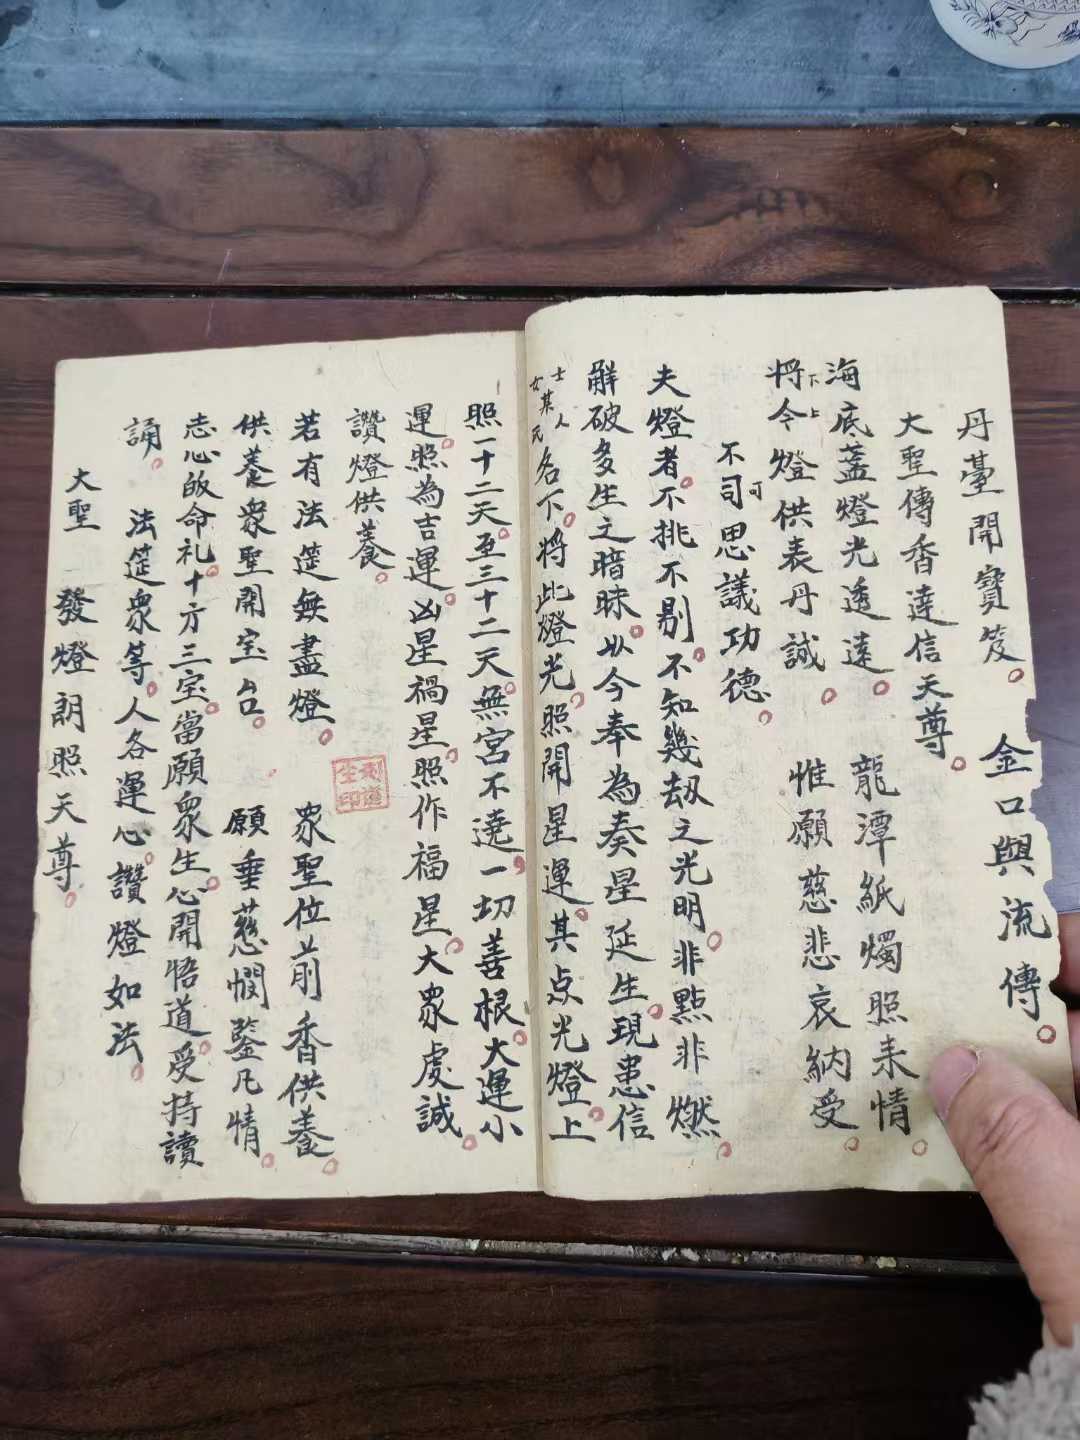 丹臺開寶笈。金口與流傳。
大聖傳香達信天尊。
海底蓋燈光透遠。龍潭紙燭照来情。
將今燈供表丹誠。惟願慈悲哀納受。
下上
不司思議功德。
可
夫燈者。不挑不剔。不知幾刼之光明。非點非燃。
觧破多生之暗昧。以今奉為奏星延生。現患信
士某人
女某氏
名下。將此燈光。照開星運。其点光燈。上
照一十二天。至三十二天。無宮不遶。一切善根。大運小
運。照為吉運。凶星禍星。照作福星。大衆虔誠。
讚燈供養。
若有法筵無盡燈。衆聖位前香供養。
供養衆聖開宝台。願垂慈憫鑒凡情。
志心皈命礼。十方三宝。當願衆生。心開悟道。受持讀
誦。法筵衆等。人各運心。讚燈如法。
大聖發燈朗照天尊。
道
生印